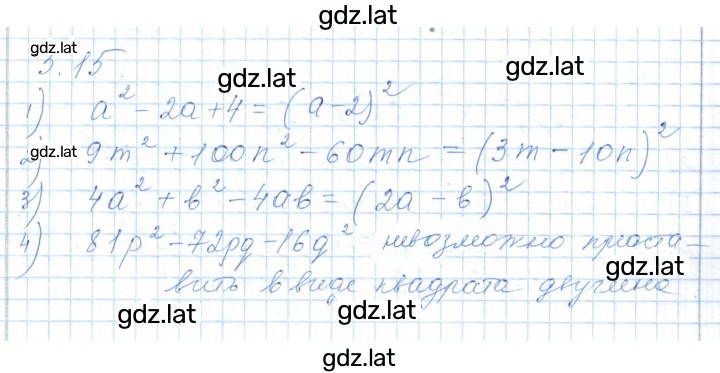 gdz.lat
gdz.lat
5.15
gdz.lat
gdz.lat
1) a² - 2a + 4 = (a - 2)²
gdz.lat
2) 9m² + 100n² - 60mn = (3m - 10n)²
3) 4a² + b² - 4ab = (2a - b)²
4) 81p² - 72pq - 16q² невозможно приста-
gdz.lat
вить в виде квадрата двучлена
gdz.lat
gdz.lat
gdz.lat